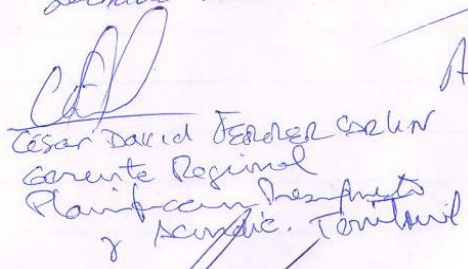 César David FERRER CARLIN
Gerente Regional
Planificacion Presupuesto
y Acondic. Territorial